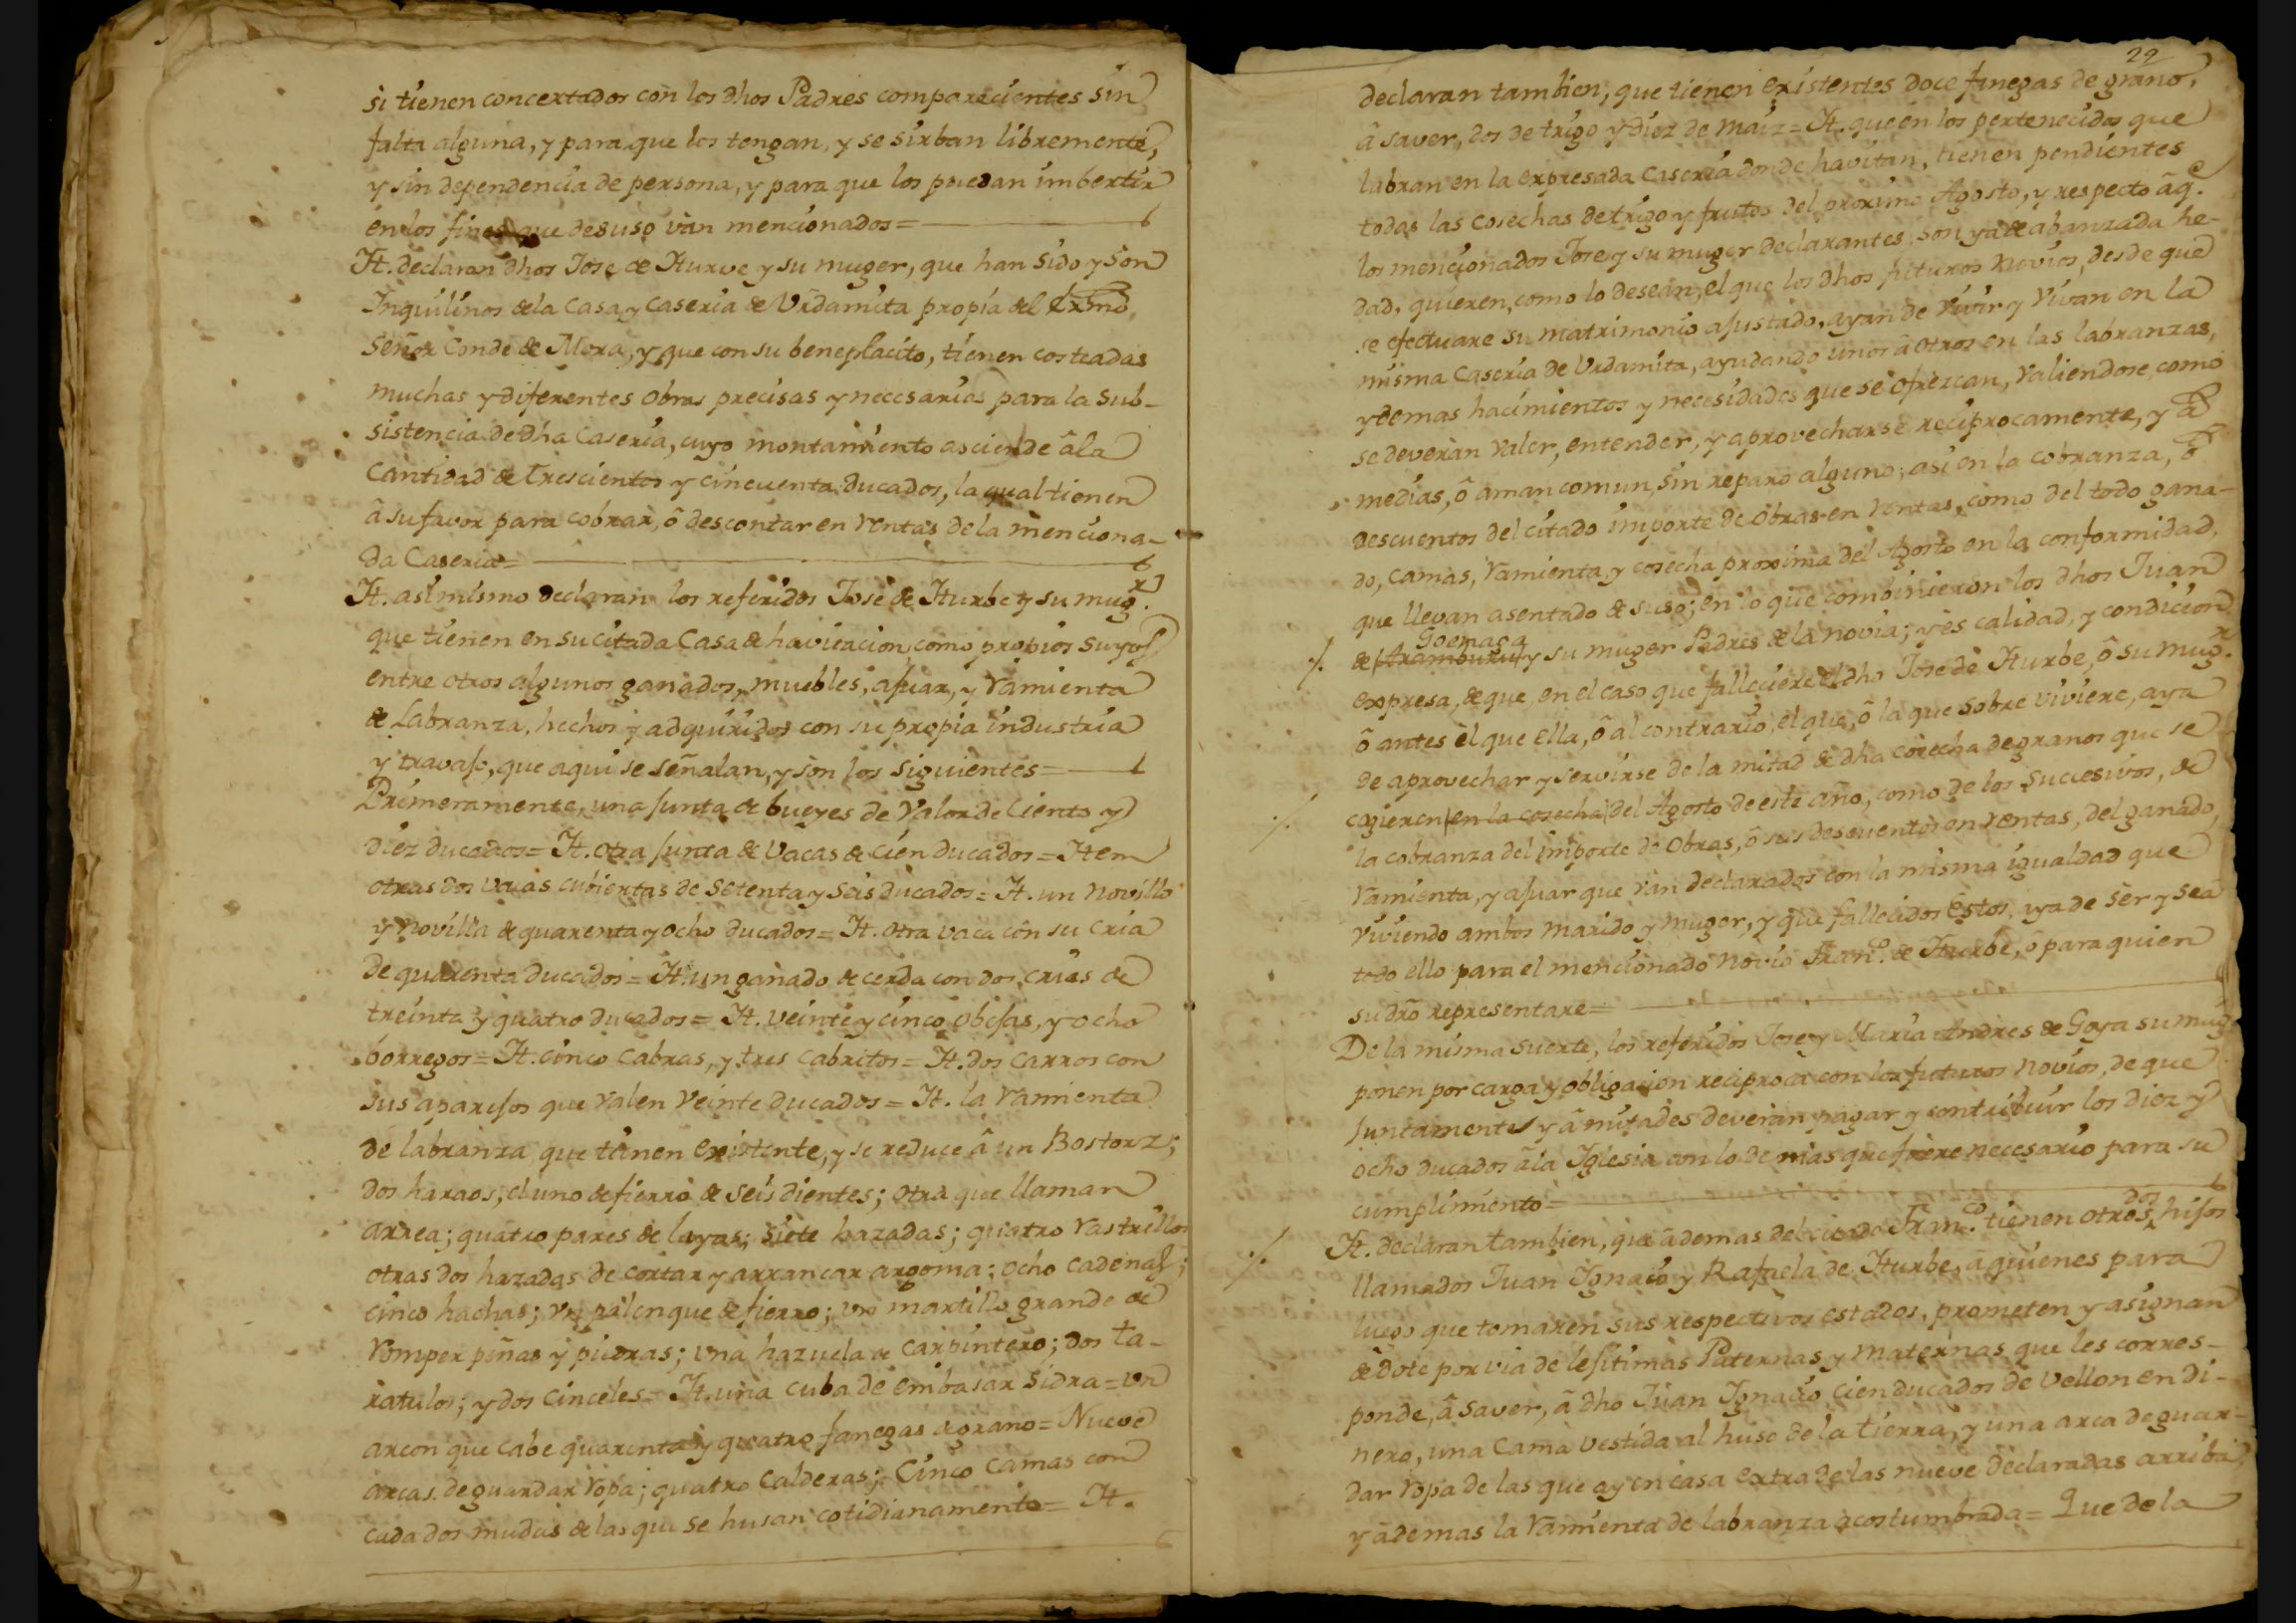 si tienen concertados con los dhos Padres comparecientes sin
falta alguna, y para que los tengan, y se sirban libremente,
y sin dependencia de persona, y para que los puedan imbertir
en los fines que desuso van mencionados=
It. declaran dhos Jose de Iturve y su muger, que han sido y son
Inquilinos de la Casa y Caseria de Urdamita propia del Exmo
Señor Conde de Mora, y que con su beneplacito, tienen costeadas
muchas y diferentes obras precisas y necesarias para la sub-
sistencia de dha Caseria, cuyo montamiento asciende â la
Cantidad de Trescientos y cincuenta ducados, la qual tienen
â su favor para cobrar, ô descontar en rentas de la menciona-
da Caseria=
It. asimismo declaran los referidos Jose de Iturbe y su mugr.
que tienen en su citada Casa de havitacion, como propios suyos
entre otros algunos ganados, muebles, ajuar, y ramienta
de Labranza, hechos y adquiridos con su propia industria
y travajo, que aqui se señalan, y son los siguientes=
Primeramente, una junta de bueyes de valor de Ciento y
diez ducados= It. otra junta de Vacas de cien ducados= Item
otras dos vacas cubiertas de setenta y seis ducados= It. un novillo
y novilla de quarenta y ocho ducados= It. otra vaca con su cria
de quarenta ducados= It. un ganado de cerda con dos crias de
treinta y quatro ducados= It. veinte y cinco obejas, y ocho
borregos= It. cinco Cabras, y tres Cabritos= It. dos Carros con
sus aparejos que valen veinte ducados= It. la ramienta
de labranza que tienen existente, y se reduce â un Bostorz;
dos haraos, el uno de fierro de seis dientes; otra que llaman
arrea; quatro pares de layas; siete hazadas; quatro rastrillos
otras dos hazadas de cortar y arrancar argoma; ocho cadenas;
cinco hachas; un palenque de fierro; un martillo grande de
romper peñas y piedras; una hazuela de Carpintero; dos ta-
ratulos; y dos cinceles= It. una cuba de embasar sidra= un
arcon que cabe quarenta y quatro fanegas de grano= Nueve
arcas de guardar ropa; quatro Calderas; Cinco Camas con
cada dos mudas de las que se husan cotidianamente= It.
22
declaran tambien, que tienen existentes doce fanegas de grano,
â saver, dos de trigo y diez de maiz= It. que en los pertenecidos que
labran en la expresada Caseria donde havitan, tienen pendientes
todas las cosechas de trigo y frutos del proximo Agosto, y respecto âqe.
los mencionados Jose y su muger declarantes, son ya de abanzada he-
dad, quieren, como lo desean, el que los dhos futuros novios, desde que
se efectuare su matrimonio ajustado, ayan de vivir y vivan en la
misma Caseria de Urdamita, ayudando unos â otros en las labranzas,
y demas hacimientos y necesidades que se ofrezcan, valiendose, como
se deveran valer, entender, y aprovecharse reciprocamente, y â
medias, ô aman comun, sin reparo alguno, asi en la cobranza, ô
descuentos del citado importe de obras en rentas, como del todo gana-
do, camas, ramienta, y cosecha proxima del Agosto en la conformidad,
que llevan asentado de suso; en lo que combinieron los dhos Juan
Goemaga
./. de Aramburu y su muger Padres de la novia; y es calidad, y condicion
expresa, de que, en el caso que falleciere el dho Jose de Iturbe, ô su mugr.
ô antes el que ella, ô al contrario, el que, ô la que sobre viviere, aya
de aprovechar y servirse de la mitad de dha cosecha de granos que se
./. cogieren en la cosecha del Agosto de este año, como de los succesivos, de
la cobranza del importe de obras, ô sus descuentos en rentas, del ganado,
ramienta, y ajuar que van declarados con la misma igualdad que
viviendo ambos marido y muger, y que fallecidos estos, aya de ser y sea
todo ello para el mencionado novio Franco. de Iturbe, ô para quien
su dro representare=
De la misma suerte, los referidos Jose y Maria Andres de Goya su mugr
ponen por carga y obligacion reciproca con los futuros novios, de que
juntamente y â mitades deveran pagar y contribuir los diez y
ocho ducados âla Iglesia con lo demas que fuere necesario para su
cumplimiento=
dos
./. It. declaran tambien, que âdemas del citado Franco. tienen otros hijos
llamados Juan Ignacio y Rafaela de Iturbe, âquienes para
luego que tomaren sus respectivos estados, prometen y asignan
de dote por via de lejitimas Paternas y maternas que les corres-
ponde, â saver, â dho Juan Ignacio Cien ducados de vellon en di-
nero, una Cama vestida al huso de la tierra, y una arca de guar-
dar ropa de las que ay en casa extra de las nueve declaradas arriba,
y âdemas la ramienta de labranza acostumbrada= Que de la